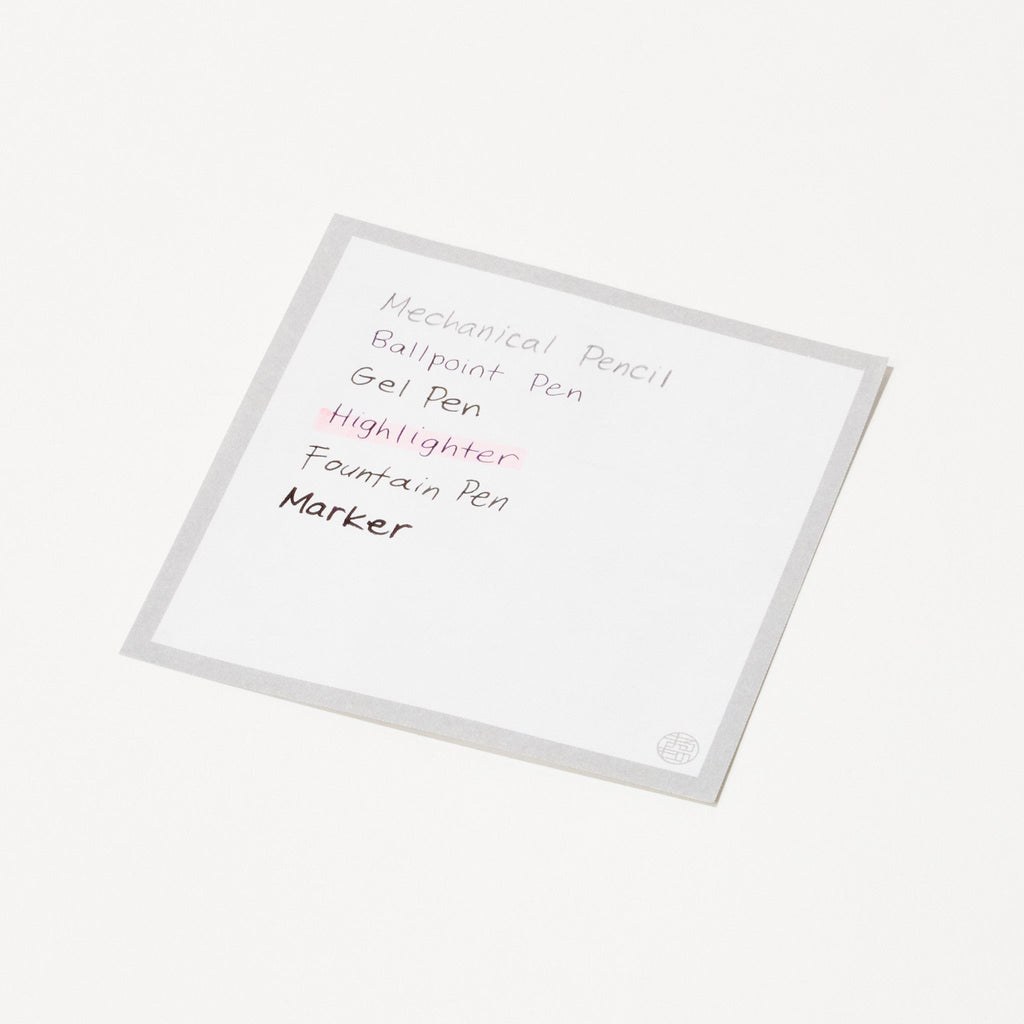 Mechanical Pencil
Ballpoint Pen
Gel Pen
Highlighter
Fountain Pen
Marker